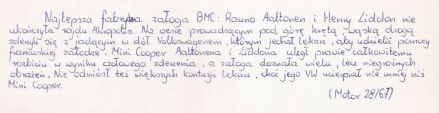 Najlepsza fabryczna załoga BMC: Rauno Aaltonen i Henry Liddon nie
ukończyła rajdu Akropolis. Na oesie prowadzącym pod górę krętą, wąską drogą
zderzyli się z jadącym w dół Volkswagenem, którym jechał lekarz, aby udzielić pomocy
francuskiej załodze. Mini Cooper Aaltonena i Liddona uległ prawie całkowitemu
rozbiciu w wyniku czołowego zderzenia, a załoga doznała wielu, lecz niegroźnych
obrażeń. Nie odniósł też większych kontuzji lekarz, choć jego VW ucierpiał nie mniej niż
Mini Cooper.
(Motor 28/67)